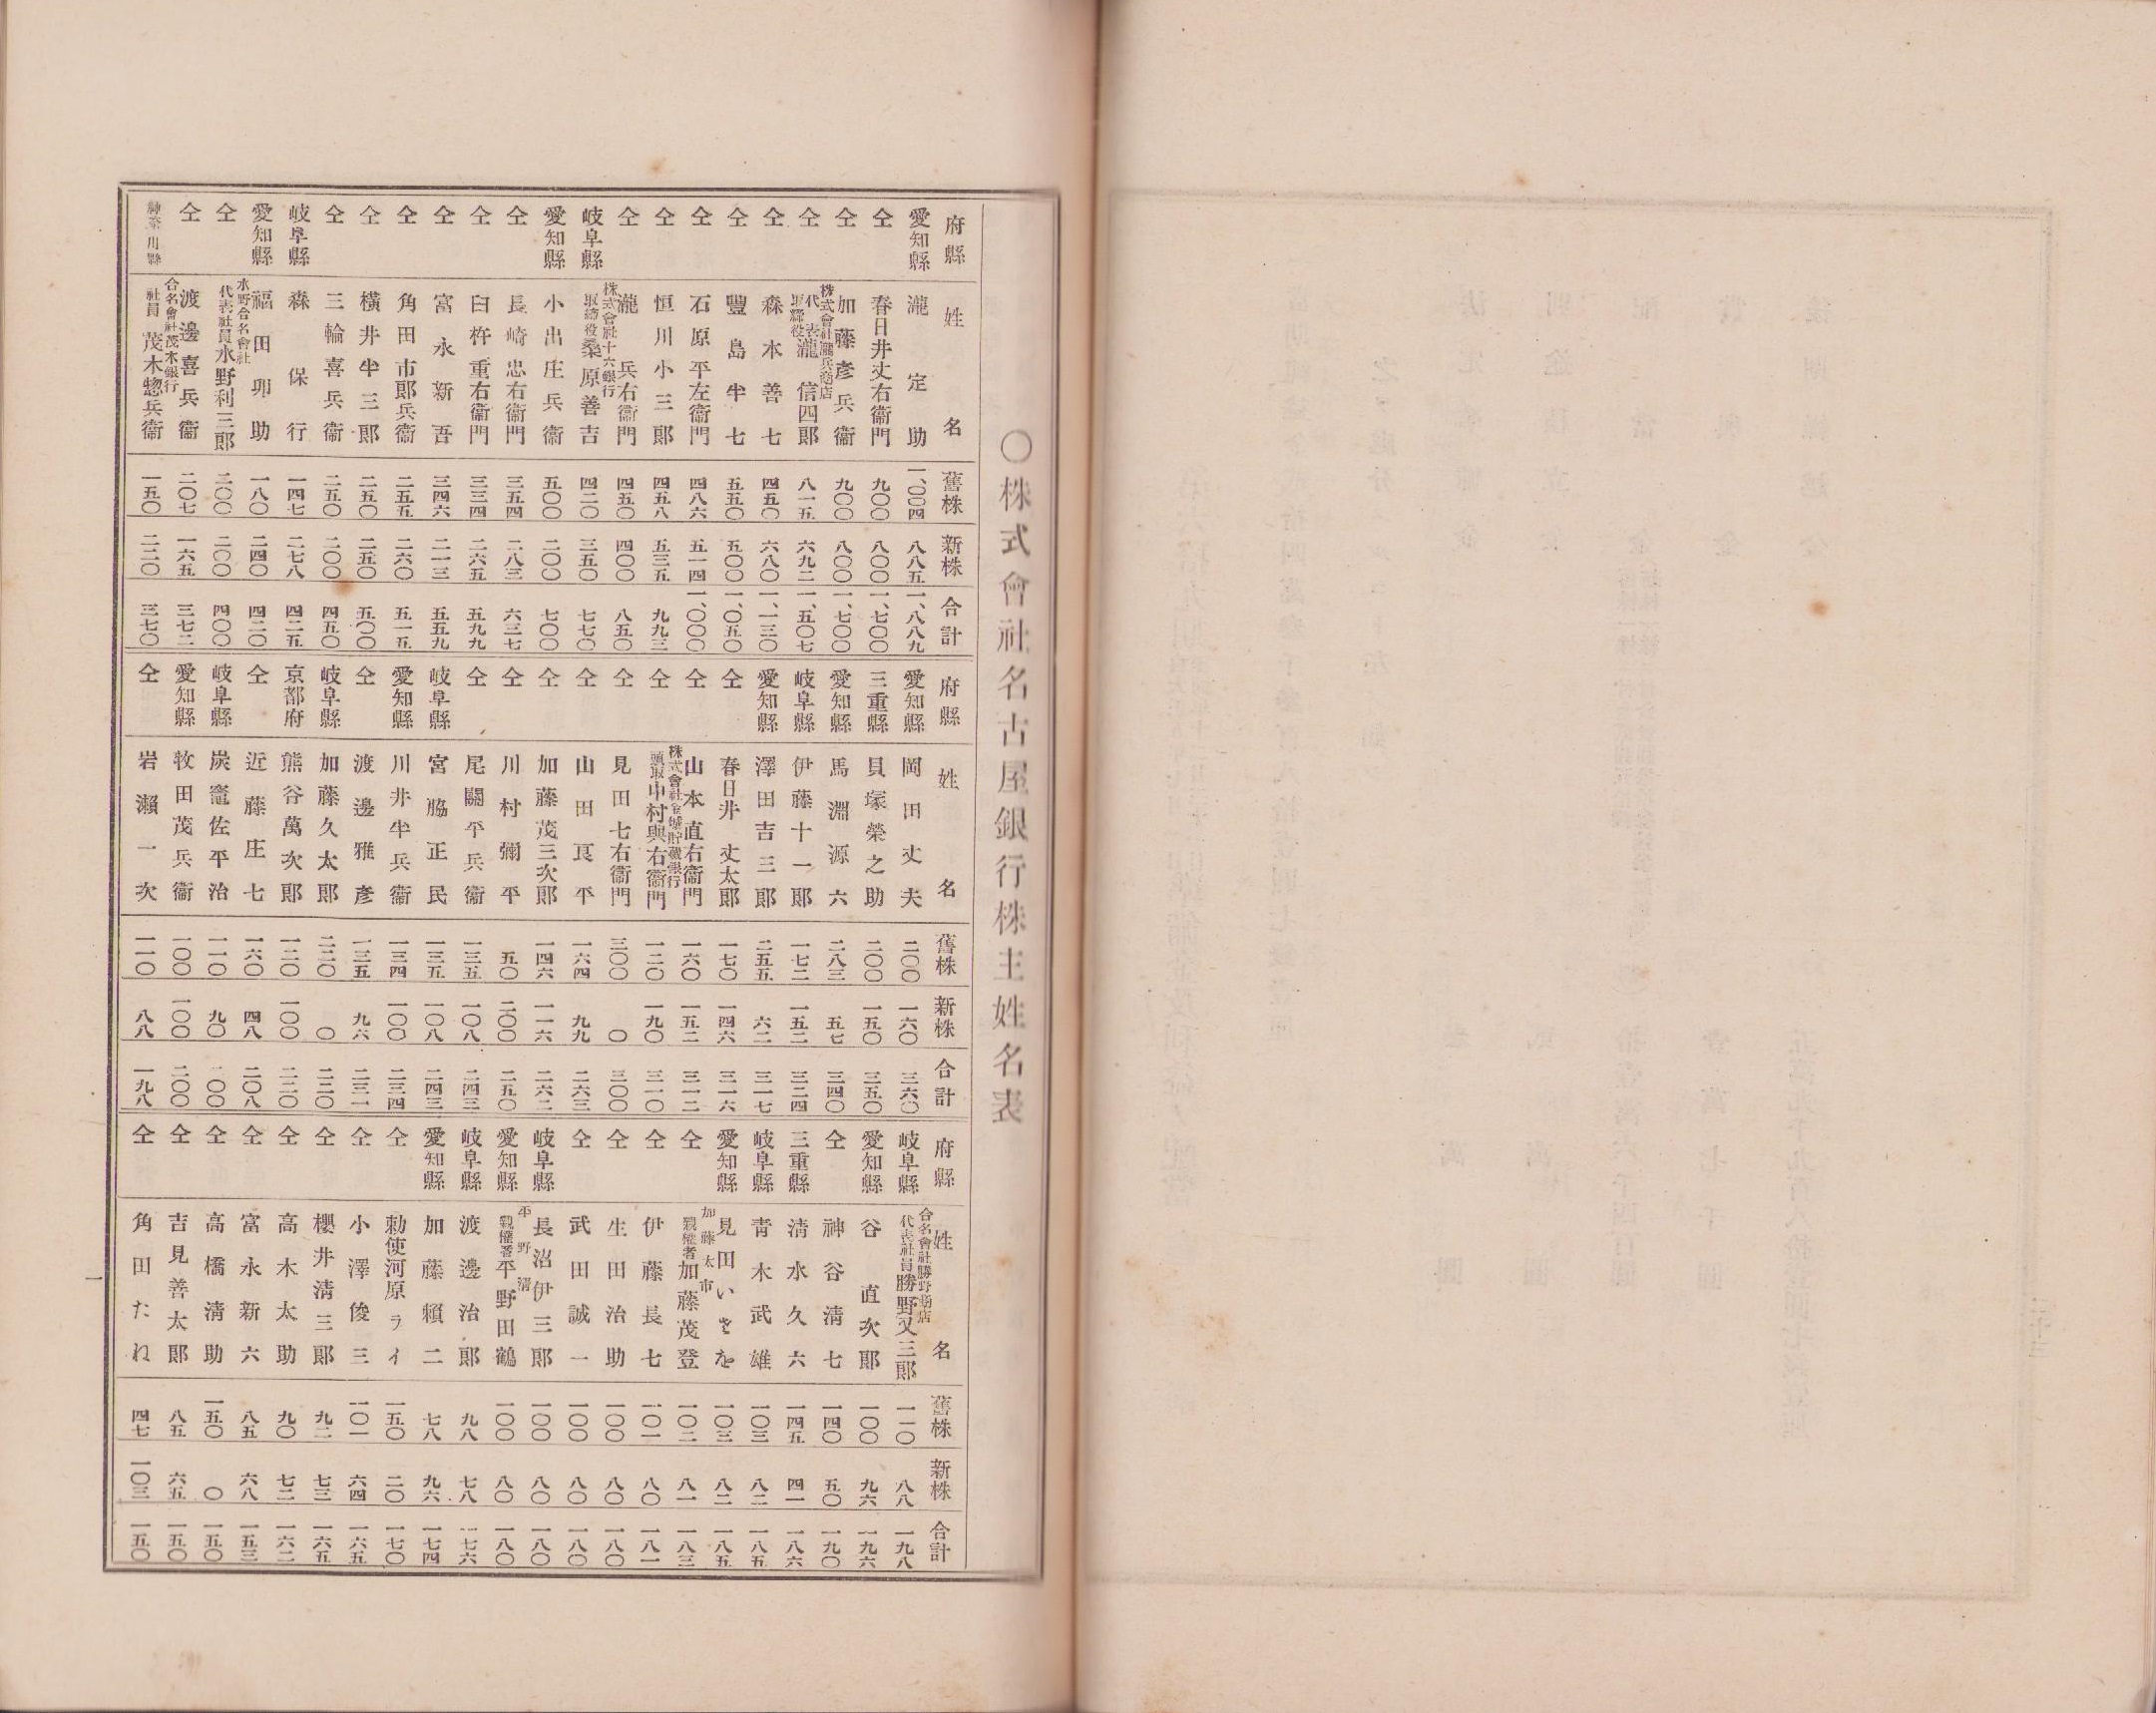 〇株式會社名古屋銀行株主姓名表
府縣 姓名 舊株 新株 合計
愛知縣 瀧定助 一、〇〇四 八八五 一、八八九
仝 春日井丈右衞門 九〇〇 八〇〇 一、七〇〇
仝 加藤彥兵衞 九〇〇 八〇〇 一、七〇〇
仝 株式會社瀧兵商店代表取締役 瀧信四郎 八一五 六九二 一、五〇七
仝 森本善七 四五〇 六八〇 一、一三〇
仝 豐島半七 五五〇 五〇〇 一、〇五〇
仝 石原平左衞門 四八六 五一四 一、〇〇〇
仝 恒川小三郎 四五八 五三五 九九三
仝 瀧兵右衞門 四五〇 四〇〇 八五〇
岐阜縣 株式會社十六銀行取締役 桑原善吉 四二〇 三五〇 七七〇
愛知縣 小出庄兵衞 五〇〇 二〇〇 七〇〇
仝 長崎忠右衞門 三五四 二八三 六三七
仝 臼杵重右衞門 三三四 二六五 五九九
仝 富永新吾 三四六 二一三 五五九
仝 角田市郎兵衞 二五五 二六〇 五一五
仝 橫井半三郎 二五〇 二五〇 五〇〇
仝 三輪喜兵衞 二五〇 二〇〇 四五〇
岐阜縣 森保行 一四七 二七八 四二五
愛知縣 福田卯助 一八〇 二四〇 四二〇
仝 水野合名會社代表社員 水野利三郎 二〇〇 二〇〇 四〇〇
仝 渡邊喜兵衞 二〇七 一六五 三七二
神奈川縣 合名會社茂木銀行社員 茂木惣兵衞 一五〇 二二〇 三七〇
府縣 姓名 舊株 新株 合計
愛知縣 岡田丈夫 二〇〇 一六〇 三六〇
三重縣 貝塚榮之助 二〇〇 一五〇 三五〇
愛知縣 馬淵源六 二八三 五七 三四〇
岐阜縣 伊藤十一郎 一七二 一五二 三二四
愛知縣 澤田吉三郎 二五五 六二 三一七
仝 春日井丈太郎 一七〇 一四六 三一六
仝 山本直右衞門 一六〇 一五二 三一二
仝 株式會社金城貯藏銀行頭取 中村與右衞門 一二〇 一九〇 三一〇
仝 見田七右衞門 三〇〇 〇 三〇〇
仝 山田良平 一六四 九九 二六三
仝 加藤茂三次郎 一四六 一一六 二六二
仝 川村彌平 五〇 二〇〇 二五〇
仝 尾關平兵衞 一三五 一〇八 二四三
岐阜縣 宮脇正民 一三五 一〇八 二四三
愛知縣 川井半兵衞 一三四 一〇〇 二三四
仝 渡邊雅彥 一三五 九六 二三一
岐阜縣 加藤久太郎 二二〇 〇 二二〇
京都府 熊谷萬次郎 一二〇 一〇〇 二二〇
仝 近藤庄七 一六〇 四八 二〇八
岐阜縣 炭竈佐平治 一一〇 九〇 二〇〇
愛知縣 牧田茂兵衞 一〇〇 一〇〇 二〇〇
仝 岩瀨一次 一一〇 八八 一九八
府縣 姓名 舊株 新株 合計
岐阜縣 合名會社勝野商店代表社員 勝野又三郎 一一〇 八八 一九八
愛知縣 谷直次郎 一〇〇 九六 一九六
仝 神谷淸七 一四〇 五〇 一九〇
三重縣 淸水久六 一四五 四一 一八六
岐阜縣 靑木武雄 一〇三 八二 一八五
愛知縣 見田いさを 一〇三 八二 一八五
仝 加藤太市親權者 加藤茂登 一〇二 八一 一八三
仝 伊藤長七 一〇一 八〇 一八一
仝 生田治助 一〇〇 八〇 一八〇
仝 武田誠一 一〇〇 八〇 一八〇
岐阜縣 長沼伊三郎 一〇〇 八〇 一八〇
愛知縣 平野淸親權者 平野田鶴 一〇〇 八〇 一八〇
岐阜縣 渡邊治郎 九八 七八 一七六
愛知縣 加藤賴二 七八 九六 一七四
仝 勅使河原ライ 一五〇 二〇 一七〇
仝 小澤俊三 一〇一 六四 一六五
仝 櫻井淸三郎 九二 七三 一六五
仝 高木太助 九〇 七二 一六二
仝 富永新六 八五 六八 一五三
仝 高橋淸助 一五〇 〇 一五〇
仝 吉見善太郎 八五 六五 一五〇
仝 角田たね 四七 一〇三 一五〇
一